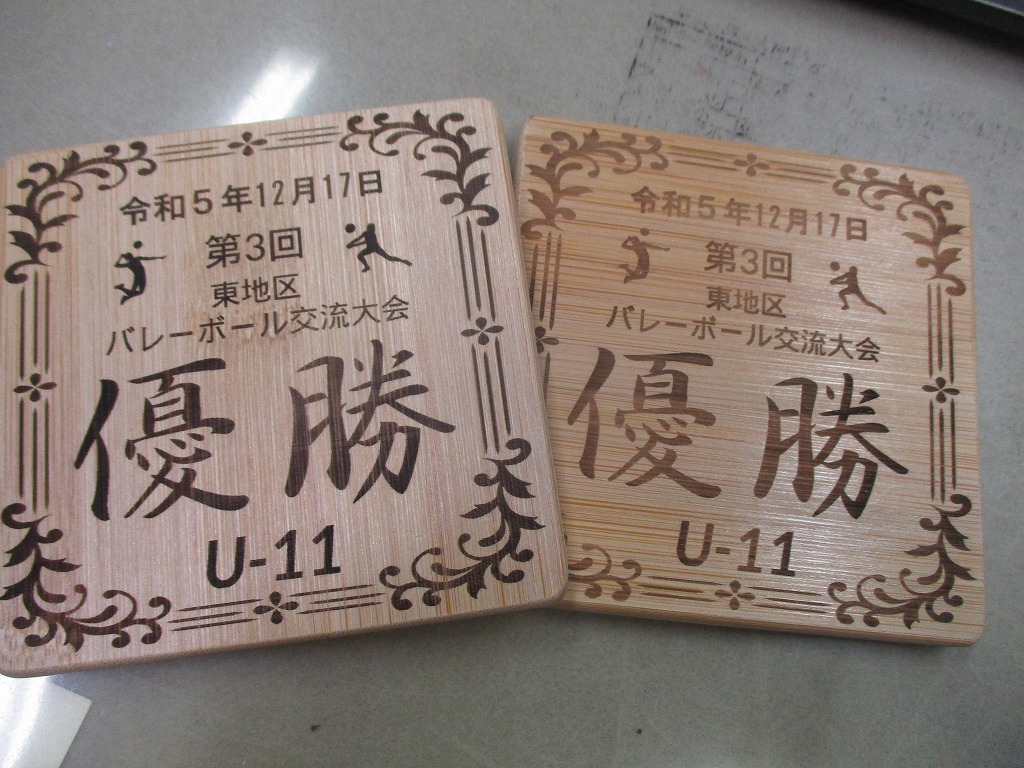 令和5年12月17日
第3回
東地区
バレーボール交流大会
優勝
U-11
令和5年12月17日
第3回
東地区
バレーボール交流大会
優勝
U-11